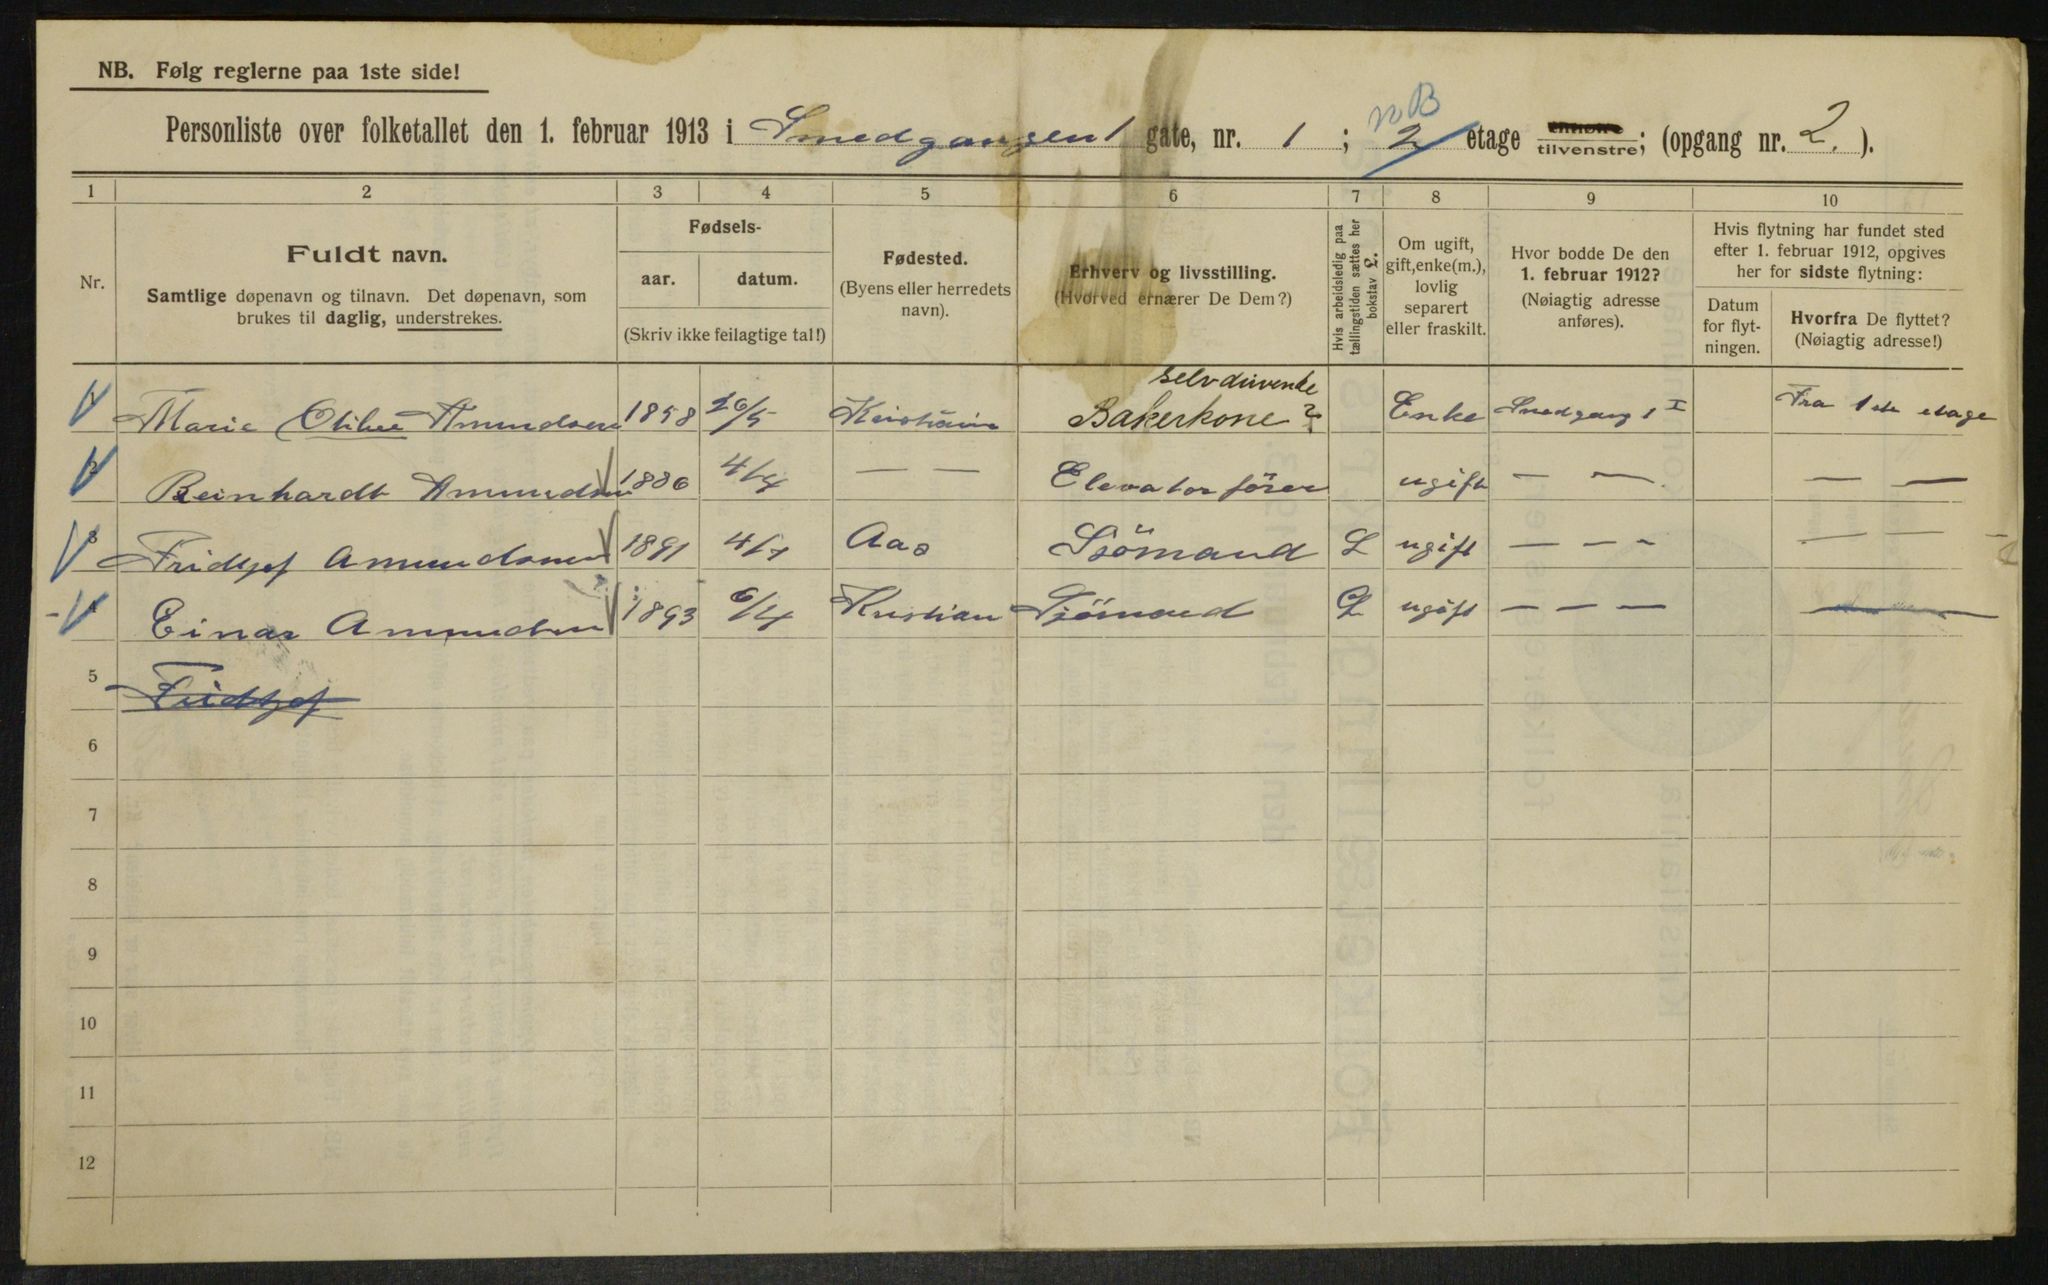 NB. Følg reglerne paa 1ste side!
Personliste over folketallet den 1. februar 1913 i Smedgangen 1 gate, nr. 1 ; 2 etage tilvenstre; (opgang nr. 2. ).
NB
1 2 3 4 5 6 7 8 9 10
Nr.
Fuldt navn.
Samtlige døpenavn og tilnavn. Det døpenavn, som
brukes til daglig, understrekes.
Fødsels-
aar. datum.
(Skriv ikke feilagtige tal!)
Fødested.
(Byens eller herredets
navn).
Erhverv og livsstilling.
(Hvorved ernærer De Dem?)
Hvis arbeidsledig paa
tællingstiden sættes her
bokstav L.
Om ugift,
gift, enke(m.),
lovlig
separert
eller fraskilt.
Hvor bodde De den
1. februar 1912?
(Nøiagtig adresse
anføres).
Hvis flytning har fundet sted
efter 1. februar 1912, opgives
her for sidste flytning:
Datum
for flyt-
ningen.
Hvorfra De flyttet?
(Nøiagtig adresse!)
selvdrivende
1 Marie Amundsen 1858 26/5 Kristiania Bakerkone? Enke Smedgang 1 I Fra 1ste etage
2 Reinhardt Amundsen 1886 4/4 — — Elevatorfører ugift — — — —
3 Fridtjof Amundsen 1891 4/7 Aas Sjömand L ugift — — - — —
4 Einar Amundsen 1893 6/4 Kristian Sjömand L ugift — — — —
5 Fridtjof
6
7
8
9
10
11
12